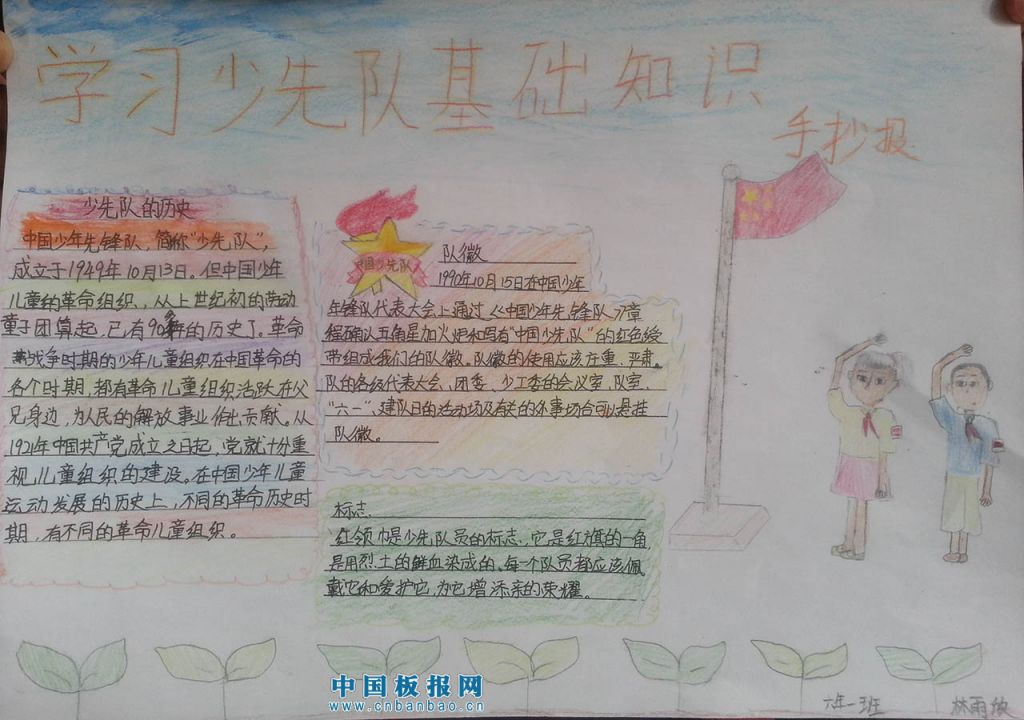 学习少先队基础知识
手抄报
少先队的历史
中国少年先锋队，简称“少先队”，
成立于1949年10月13日。但中国少年
儿童的革命组织，从上世纪初的劳动
童子团算起，已有90多年的历史了。革命
战争时期的少年儿童组织在中国革命的
各个时期，都有革命儿童组织活跃在父
兄身边，为人民的解放事业作出贡献。从
1921年中国共产党成立之日起，党就十分重
视儿童组织的建设。在中国少年儿童
运动发展的历史上，不同的革命历史时
期，有不同的革命儿童组织。
中国少先队
队徽
1990年10月15日在中国少年
年锋队代表大会上通过《中国少年先锋队》章
程确认五角星加火炬和写有“中国少先队”的红色绶
带组成我们的队徽。队徽的使用应该庄重、严肃。
队的各级代表大会、团委、少工委的会议室、队室、
“六一”、建队日的活动场及有关的外事场合可以悬挂
队徽。
标志
红领巾是少先队员的标志，它是红旗的一角，
是用烈士的鲜血染成的，每一个队员都应该佩
戴它和爱护它，为它增添亲的荣耀。
中国板报网
www.cnbanbao.cn
六年一班
林雨